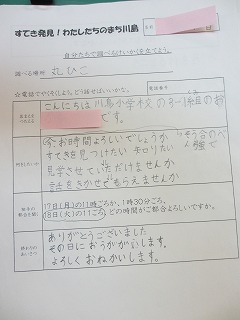 すてき発見！わたしたちのまち川島
名前
自分たちで調べるけいかくを立てよう。
調べる場所 丸ひこ
☆電話でやくそくしよう。どう話せばいいかな。
電話番号
こんにちは川島小学校の3-1組の
です。
今お時間よろしいでしょうか
すてきを見つけたい 知りたい
見学させていただけませんか
話をきかせてもらえませんか
17日(月)の11時ごろか、1時30ごろ、
18日(火)の11ごろ、どの時間がご都合よろしいですか。
ありがとうございました
その日におうがかいします。
よろしくおねがいします。